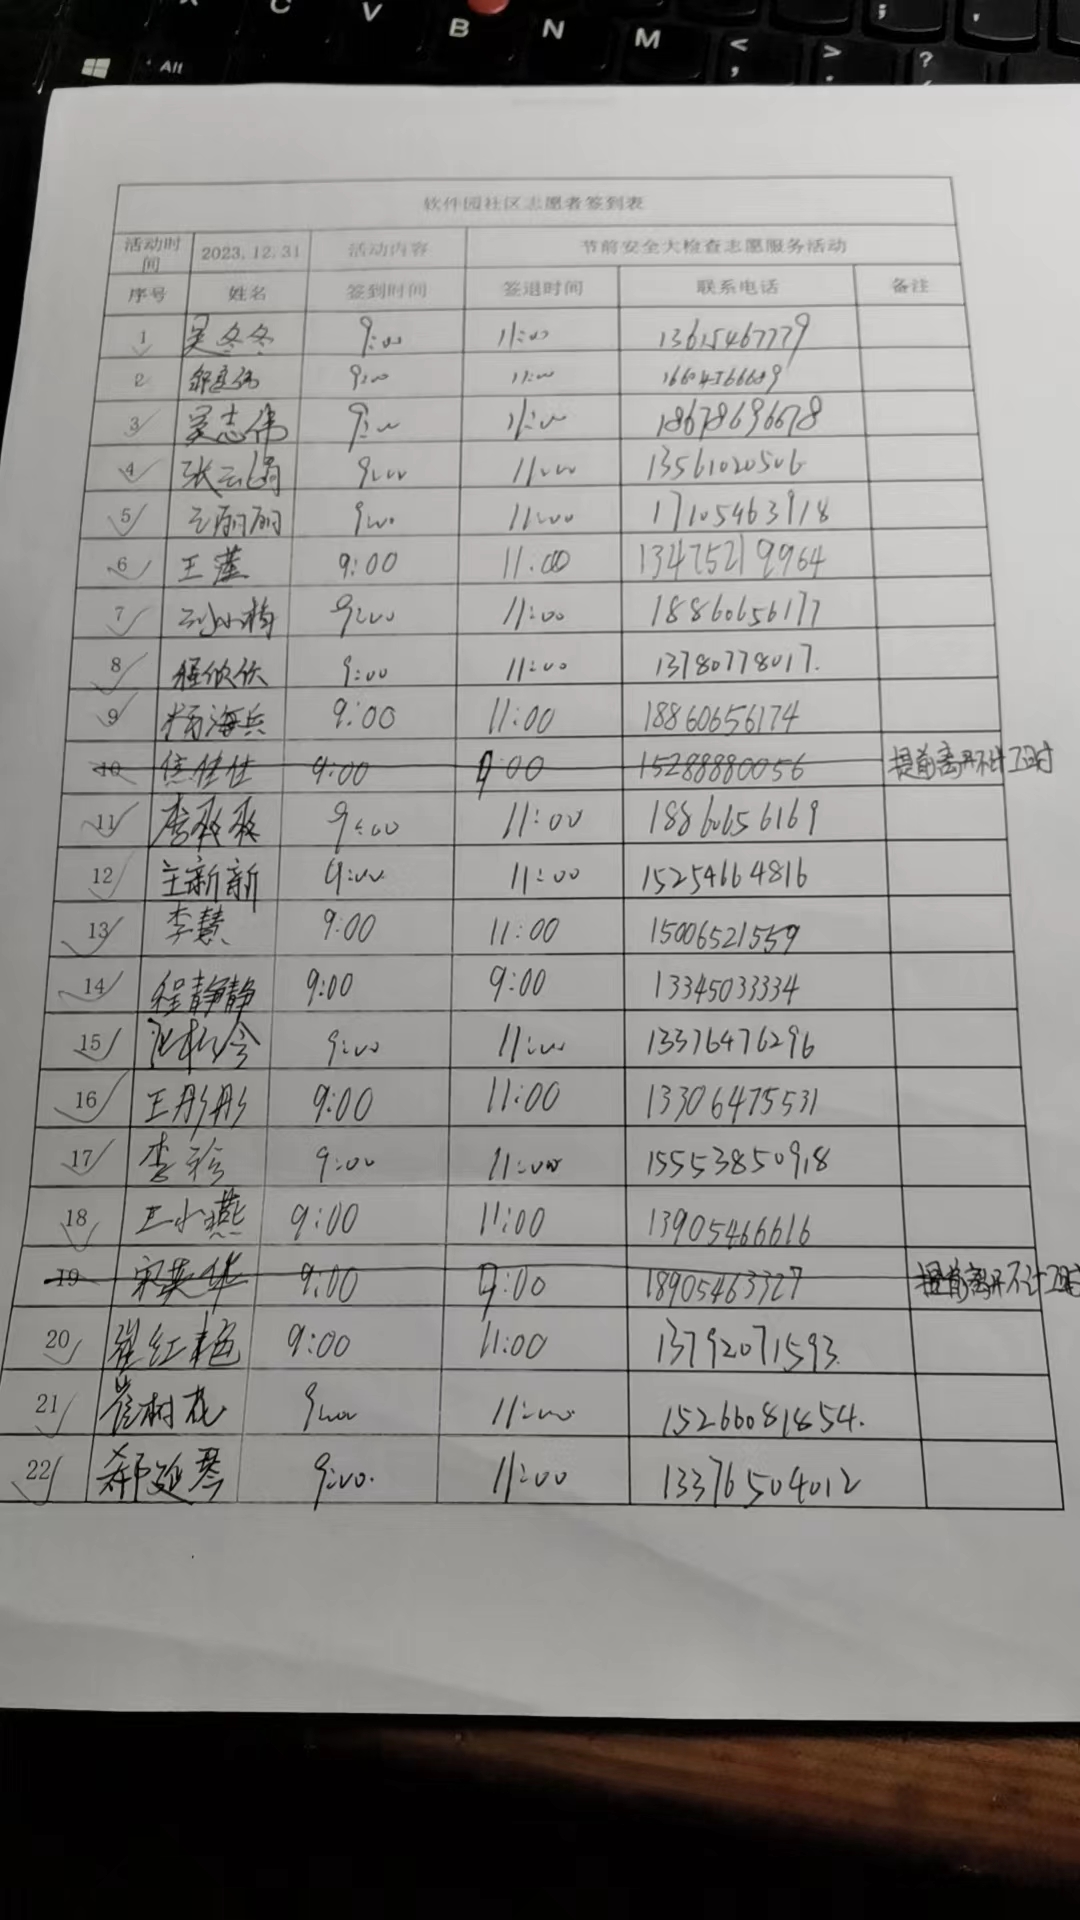 C
V
B
N
M
<
,
>
.
?
;
Alt
软件园社区志愿者签到表
活动时间 2023.12.31 活动内容 节前安全大检查志愿服务活动
序号 姓名 签到时间 签退时间 联系电话 备注
1 吴冬冬 9:00 11:00 13615467779
2 9:00 11:00
3 吴志伟 9:00 11:00 18678696678
4 张云娟 9:00 11:00 13561020506
5 王丽丽 9:00 11:00 17105463918
6 王莲 9:00 11:00 13475219964
7 刘小梅 9:00 11:00 18860656177
8 程欣欣 9:00 11:00 13780778017.
9 杨海兵 9:00 11:00 18860656174
10 焦佳佳 9:00 9:00 15288880056 提前离开不计工时
11 李爽爽 9:00 11:00 18860656169
12 王新新 9:00 11:00 15254664816
13 李慧 9:00 11:00 15006521559
14 程静静 9:00 9:00 13345033334
15 9:00 11:00 13376476296
16 王彤彤 9:00 11:00 13306475531
17 李珍 9:00 11:00 15553850918
18 王小燕 9:00 11:00 13905466616
19 宋英华 9:00 9:00 18905463327 提前离开不计工时
20 崔红艳 9:00 11:00 13792071593.
21 崔树花 9:00 11:00 15266081854.
22 郝延琴 9:00. 11:00 13376504012